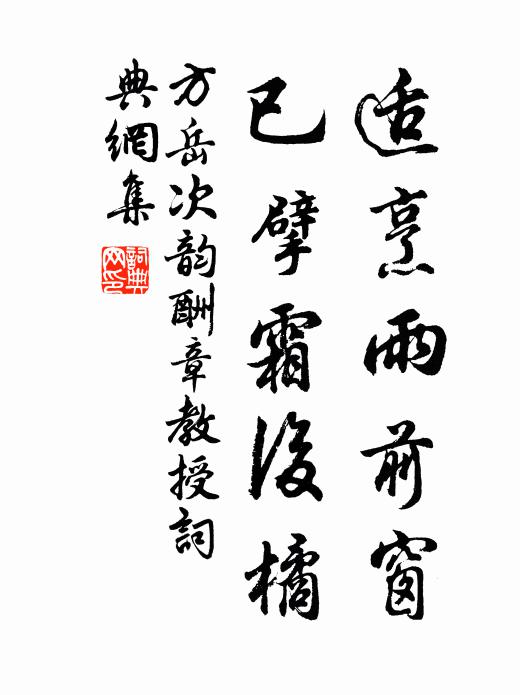 适烹雨前窗
已擘霜後橘
方岳次韵酬章教授詞
典網集
詞典網印